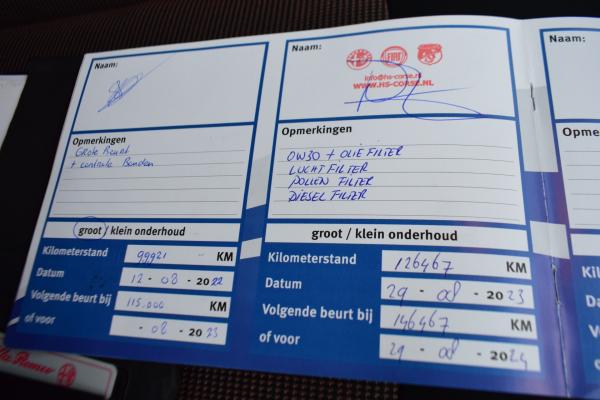 Naam:
Opmerkingen
Grote Beurt
+ controle Banden
groot / klein onderhoud
Kilometerstand 99921 KM
Datum 12 - 08 - 2022
Volgende beurt bij 115.000 KM
of voor - 08 - 2023
Naam:
FIAT
info@hs-corse.nl
WWW.HS-CORSE.NL
Opmerkingen
OW30 + OLIE FILTER
LUCHT FILTER
POLLEN FILTER
DIESEL FILTER
groot / klein onderhoud
Kilometerstand 126467 KM
Datum 29 - 08 - 2023
Volgende beurt bij 146467 KM
of voor 29 - 08 - 2024
Naam:
Opmerkingen
Kilometerstand
Datum
Volgende
of voor
Alfa Romeo